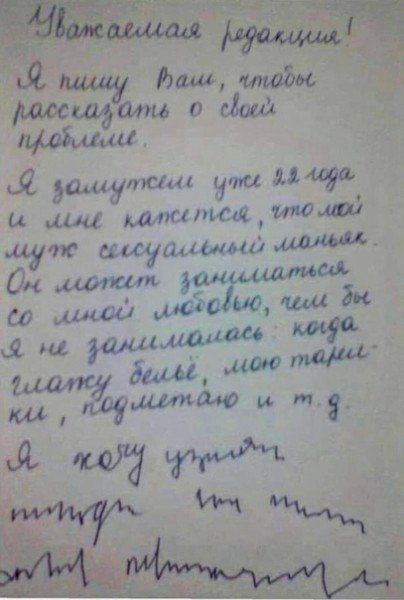 Уважаемая редакция!
Я пишу Вам, чтобы
рассказать о своей
проблеме.
Я замужем уже 22 года
и мне кажется, что мой
муж сексуальный маньяк.
Он может заниматься
со мной любовью, чем бы
я не занималась: когда
глажу бельё, мою тарел-
ки, подметаю и т.д.
Я хочу